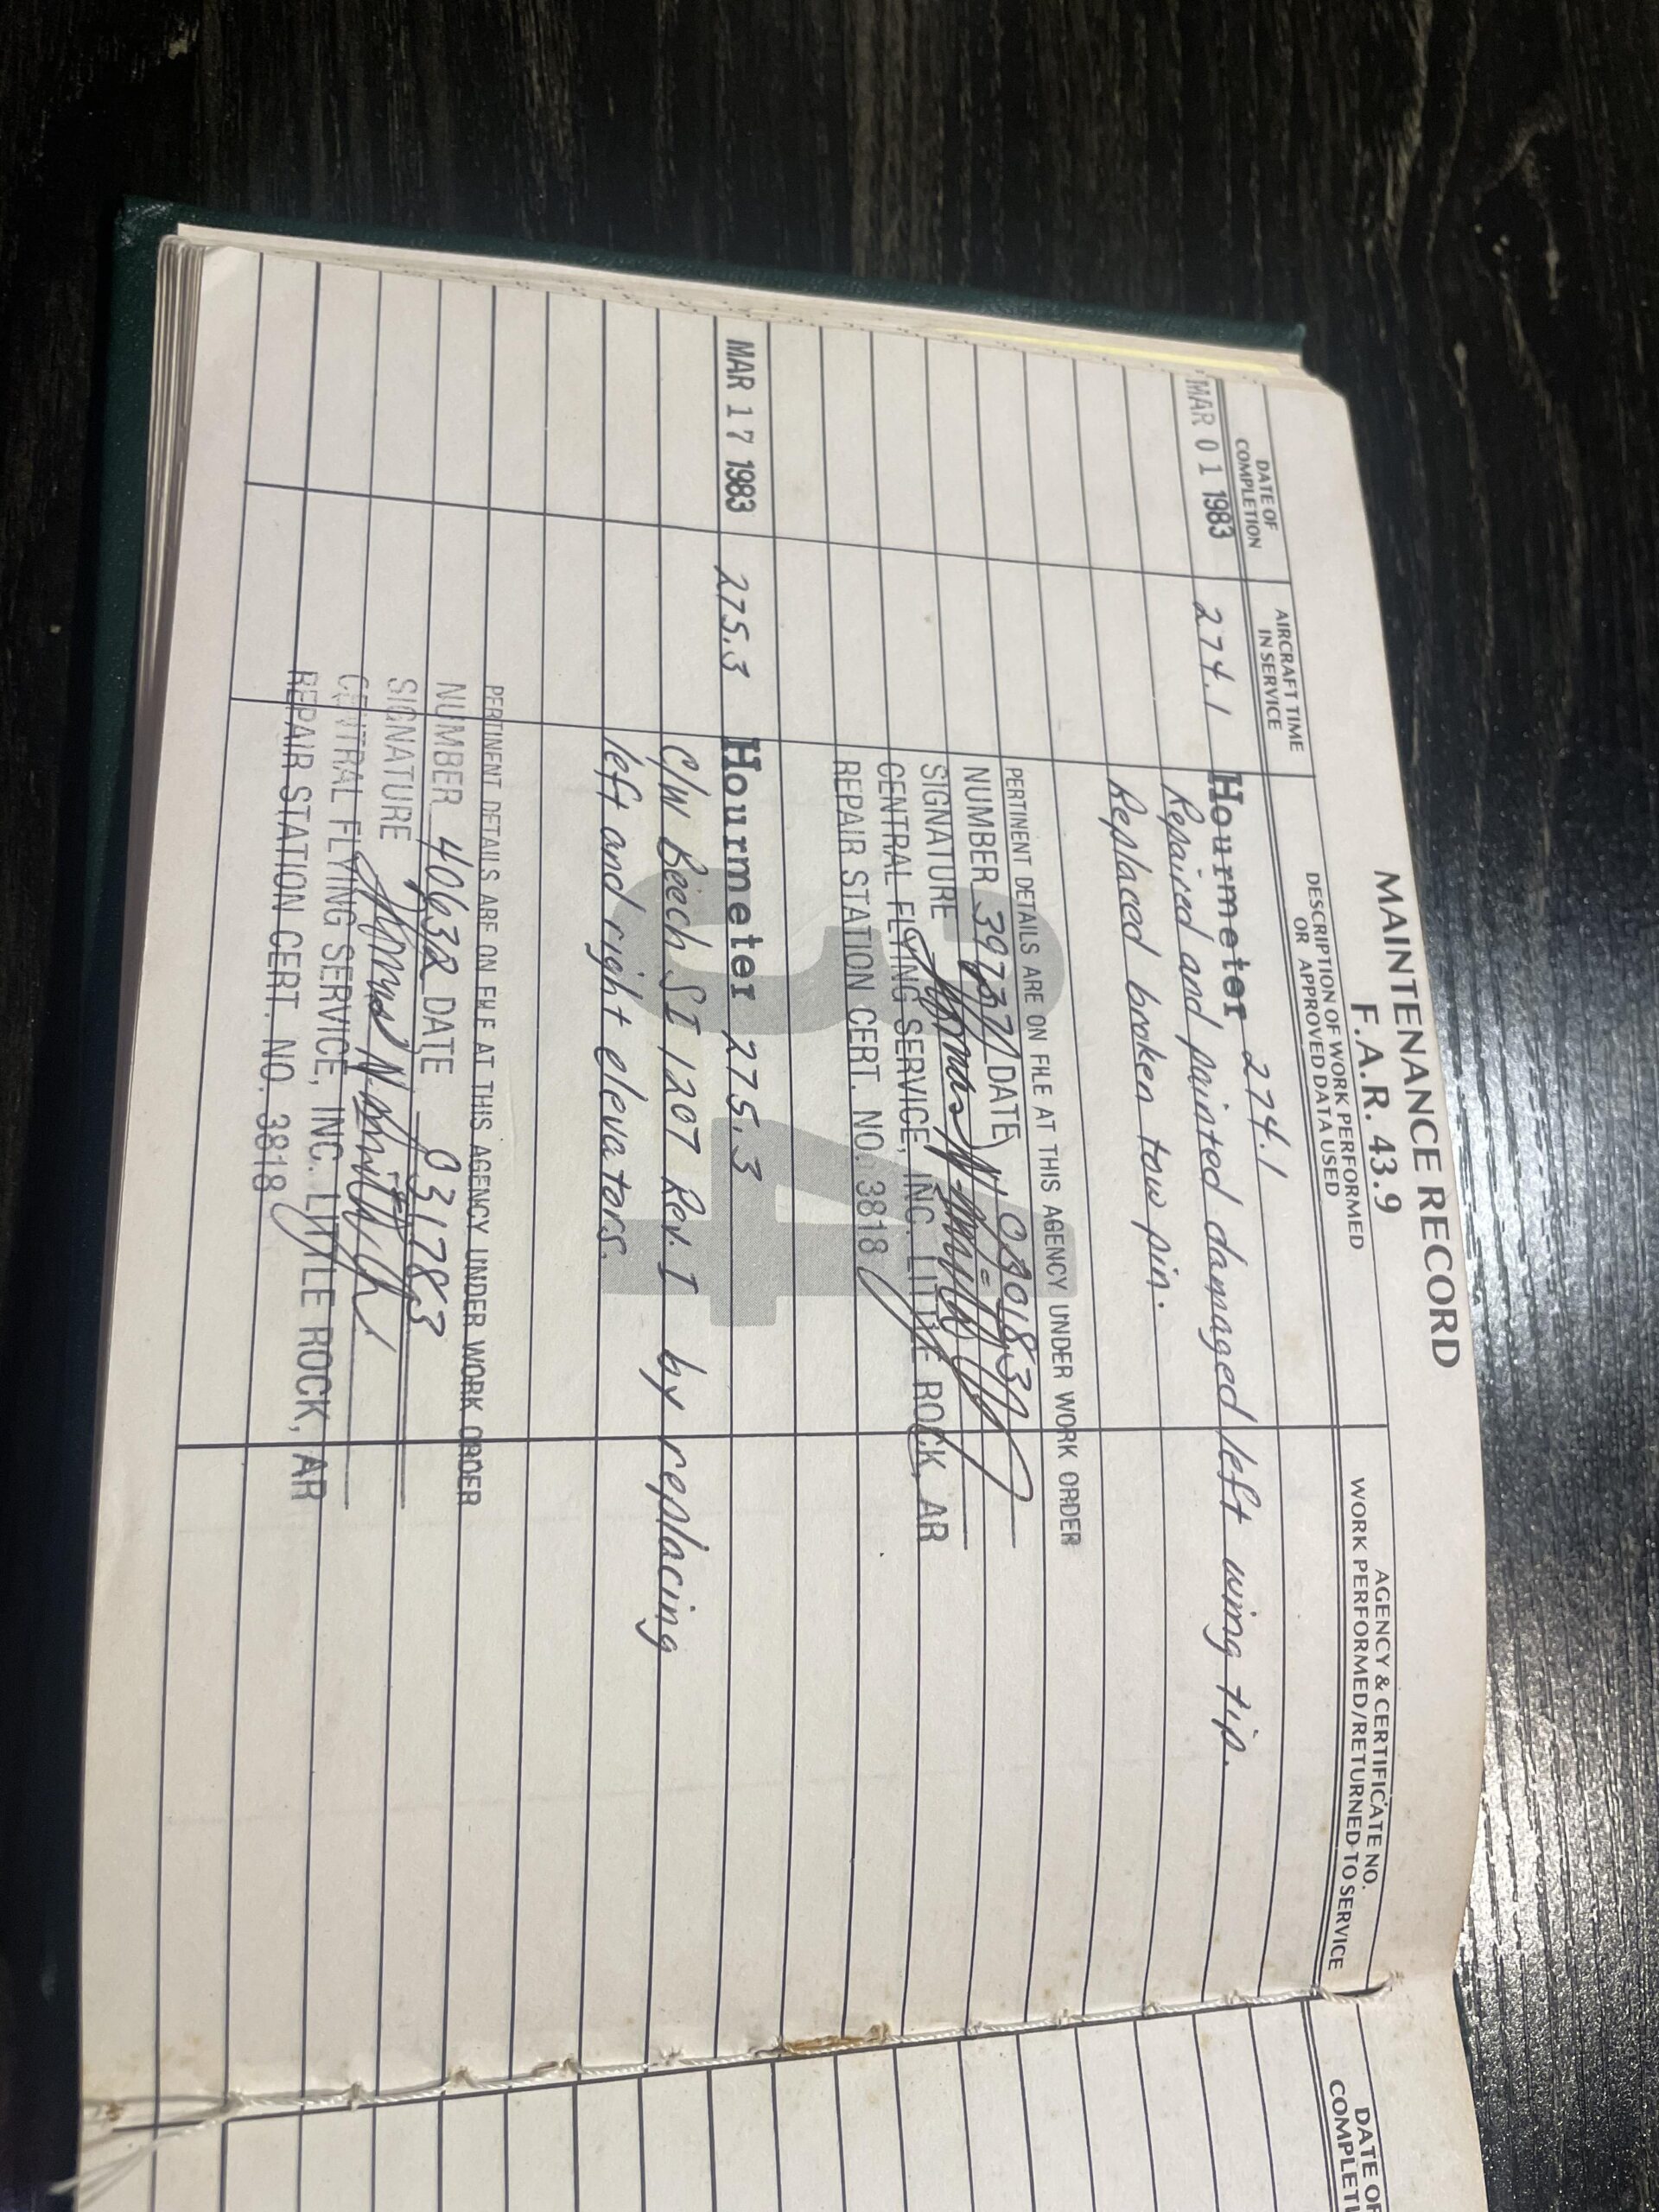 MAINTENANCE RECORD
F.A.R. 43.9
DATE OF
COMPLETION
AIRCRAFT TIME
IN SERVICE
DESCRIPTION OF WORK PERFORMED
OR APPROVED DATA USED
AGENCY & CERTIFICATE NO.
WORK PERFORMED/RETURNED TO SERVICE
MAR 01 1983 274.1 Hourmeter 274.1
Repaired and painted damaged left wing tip.
Replaced broken tow pin.
PERTINENT DETAILS ARE ON FILE AT THIS AGENCY UNDER WORK ORDER
NUMBER DATE
SIGNATURE
CENTRAL FLYING SERVICE, INC. LITTLE ROCK, AR
REPAIR STATION CERT. NO. 3818
34
MAR 17 1983 275.3 Hourmeter 275.3
C/W Beech SI 1207 Rev. I by replacing
left and right elevators.
PERTINENT DETAILS ARE ON FILE AT THIS AGENCY UNDER WORK ORDER
NUMBER 40632 DATE 031783
SIGNATURE
CENTRAL FLYING SERVICE, INC. LITTLE ROCK, AR
REPAIR STATION CERT. NO. 3818
DATE OF